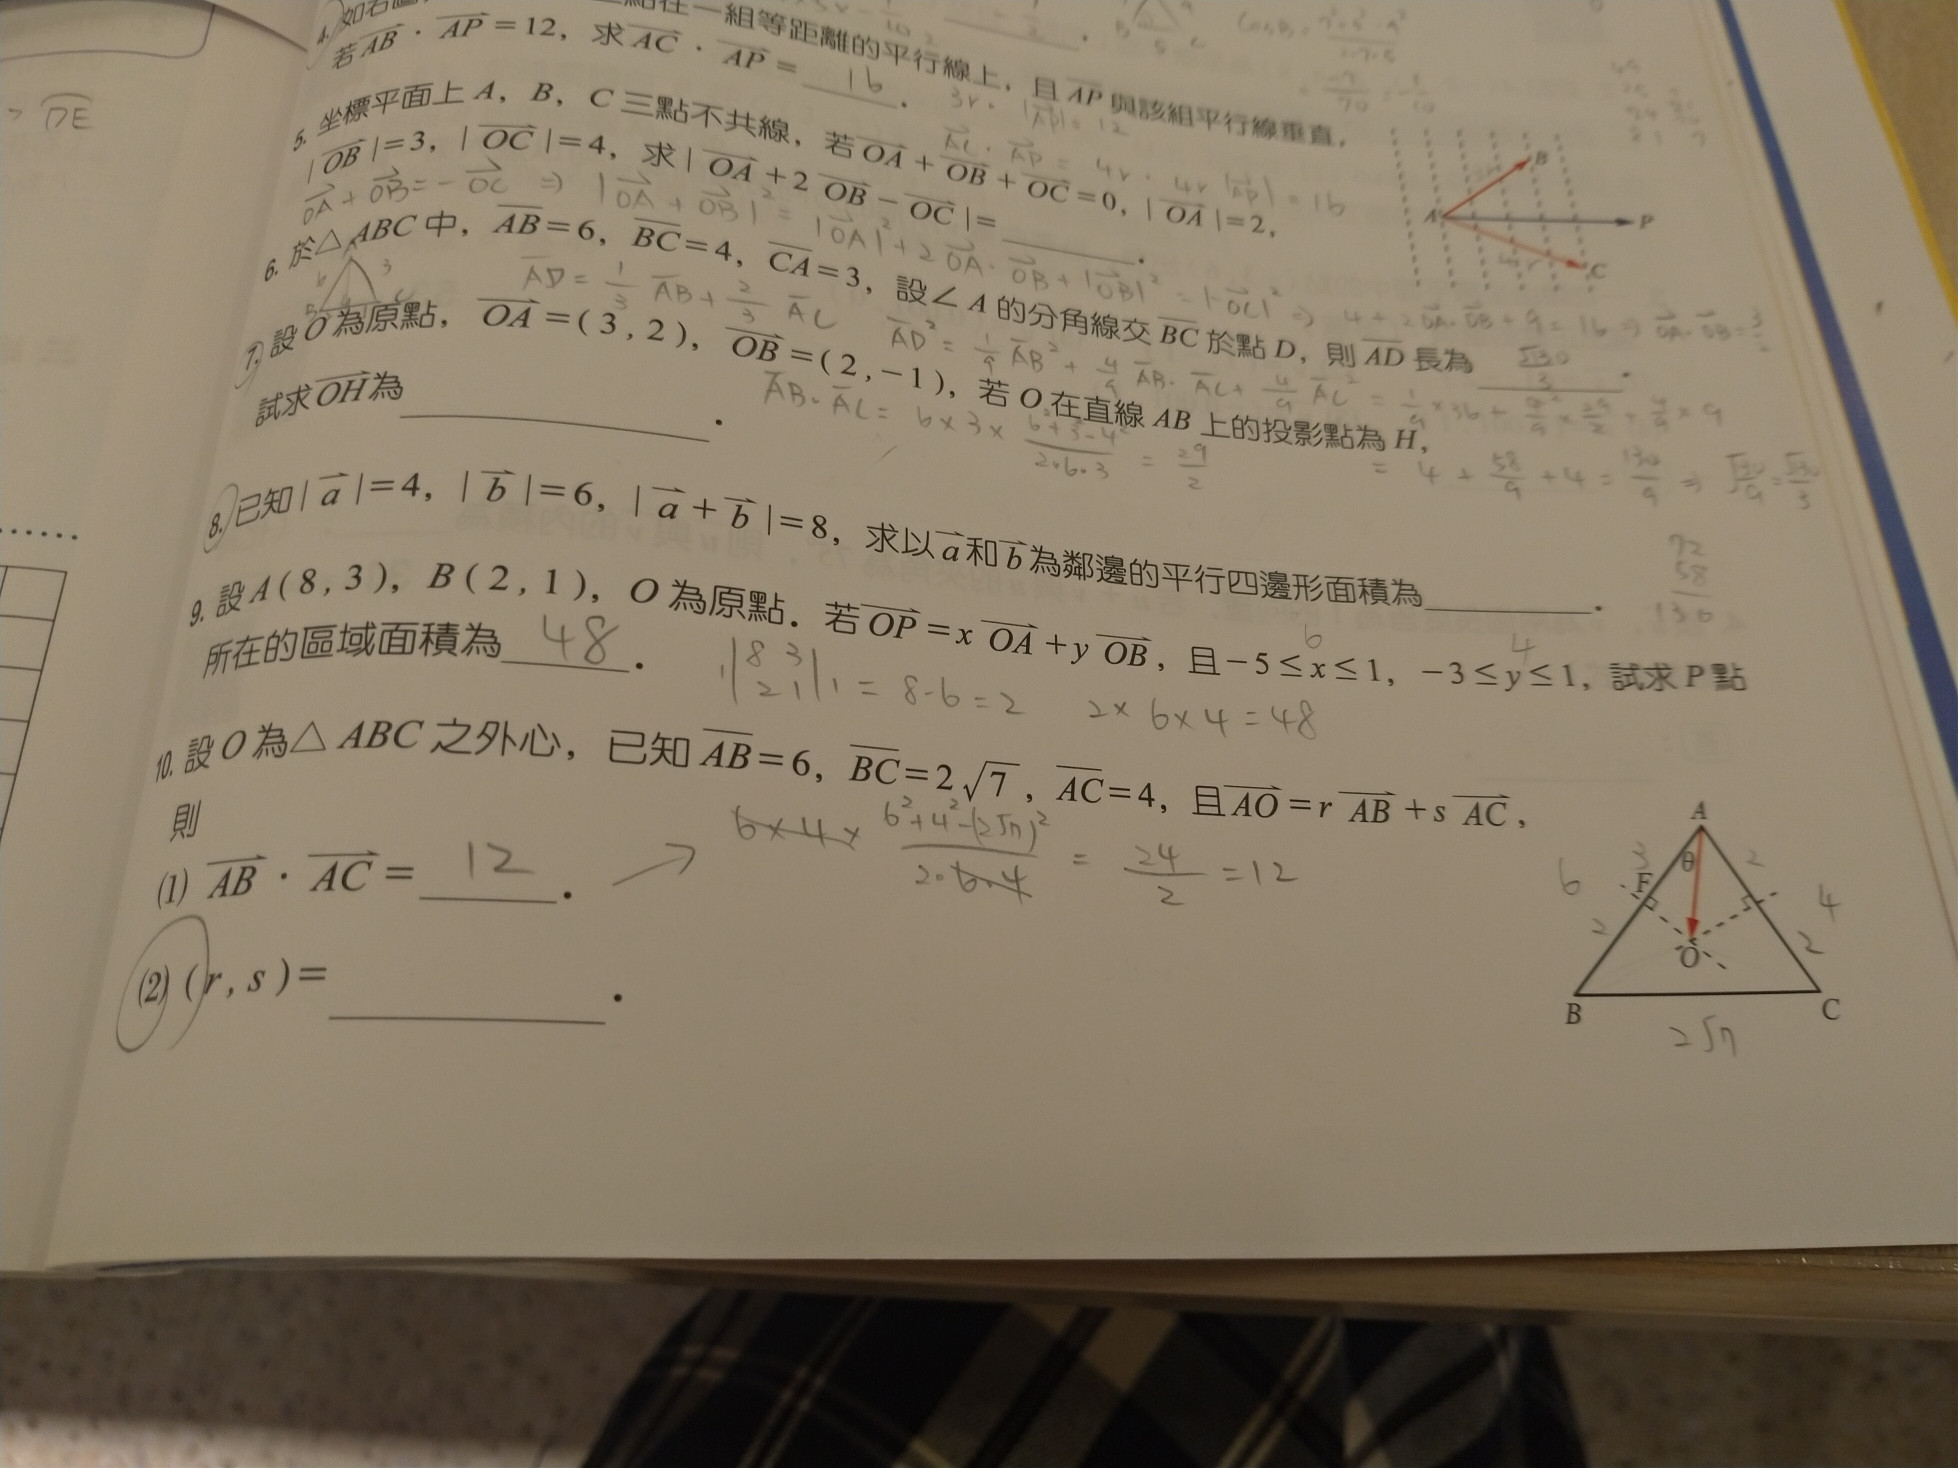 4. 如右圖
一組等距離的平行線上，且AP與該組平行線垂直，
若AB · AP = 12，求AC · AP = 16 .
3r · |AP| = 12
AC · AP = 4r · 4r |AP| = 16
5. 坐標平面上 A，B，C 三點不共線，若OA + OB + OC = 0，| OA | = 2，
| OB | = 3，| OC | = 4，求 | OA + 2 OB − OC | = ______ .
OA + OB = − OC ⇒ |OA + OB|² = |OA|² + 2 OA · OB + |OB|² = |−OC|² ⇒ 4 + 2 OA · OB + 9 = 16 ⇒ OA · OB = 3/2
6. 於△ABC 中，AB = 6，BC = 4，CA = 3，設∠A 的分角線交 BC 於點 D，則 AD 長為 √130/3 .
AD = 1/3 AB + 2/3 AC
AD² = 1/9 AB² + 4/9 AB · AC + 4/9 AC² = 1/9 × 36 + 4/9 × 29/2 + 4/9 × 9
AB · AC = 6 × 3 × (6² + 3² − 4²)/(2·6·3) = 29/2
= 4 + 58/9 + 4 = 130/9 ⇒ √130/9 = √130/3
7. 設 O 為原點，OA = ( 3 , 2 )，OB = ( 2 , −1 )，若 O 在直線 AB 上的投影點為 H，
試求OH為 ______ .
8. 已知 | a | = 4，| b | = 6，| a + b | = 8，求以 a 和 b 為鄰邊的平行四邊形面積為 ______ .
72
58
130
9. 設 A ( 8 , 3 )，B ( 2 , 1 )，O 為原點．若 OP = x OA + y OB，且 −5 ≤ x ≤ 1，−3 ≤ y ≤ 1，試求 P 點
6 4
所在的區域面積為 48 .
| 8 3
2 1 | = 8-6 = 2 2 × 6 × 4 = 48
10. 設 O 為△ ABC 之外心，已知 AB = 6，BC = 2√7，AC = 4，且 AO = r AB + s AC，
則
(1) AB · AC = 12 .
6 × 4 × (6² + 4² − (2√7)²)/(2·6·4) = 24/2 = 12
(2) ( r , s ) = ______ .
A B C P
A
3 θ 2
6 F 4
2 O 2
B C
2√7
DE